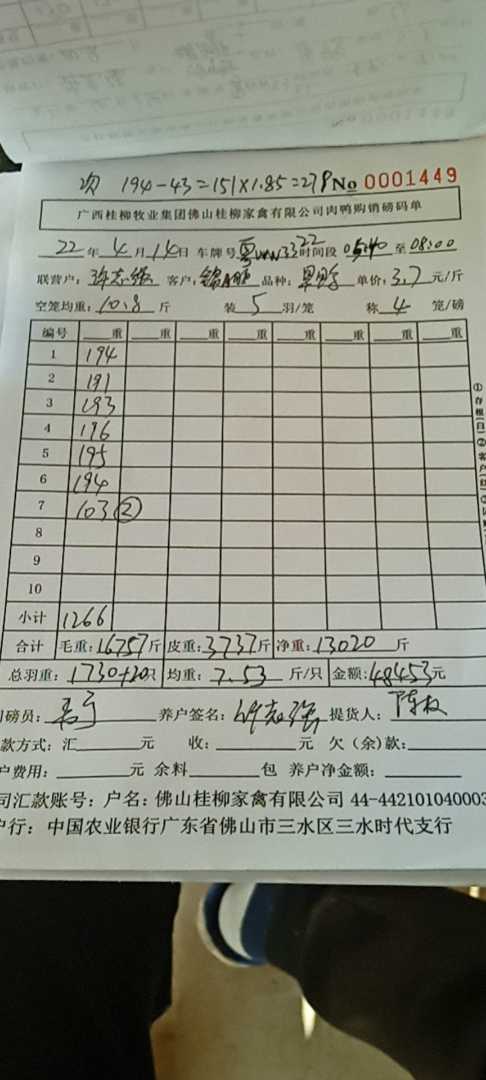 次 194-43=151×1.85=279 No 0001449
广西桂柳牧业集团佛山桂柳家禽有限公司肉鸭购销磅码单
22年4月14日 车牌号 3322 时间段 0540至08:00
联营户:许志强 客户: 品种: 单价:3.7元/斤
空笼均重:10.8斤 装5羽/笼 称4笼/磅
编号 重 重 重 重 重 重 重 重
1 194
2 191
3 193
4 196
5 195
6 194
7 103 ②
8
9
10
小计 1266
合计 毛重:16757斤 皮重:3737斤 净重:13020斤
总羽重:1730+20只 均重:7.53斤/只 金额:48453元
磅员: 养户签名:许志强 提货人:陈
款方式:汇 元 收: 元 欠(余)款:
户费用: 元 余料 包 养户净金额:
司汇款账号:户名:佛山桂柳家禽有限公司 44-442101040003
户行:中国农业银行广东省佛山市三水区三水时代支行
①存根(白)②客户(红)